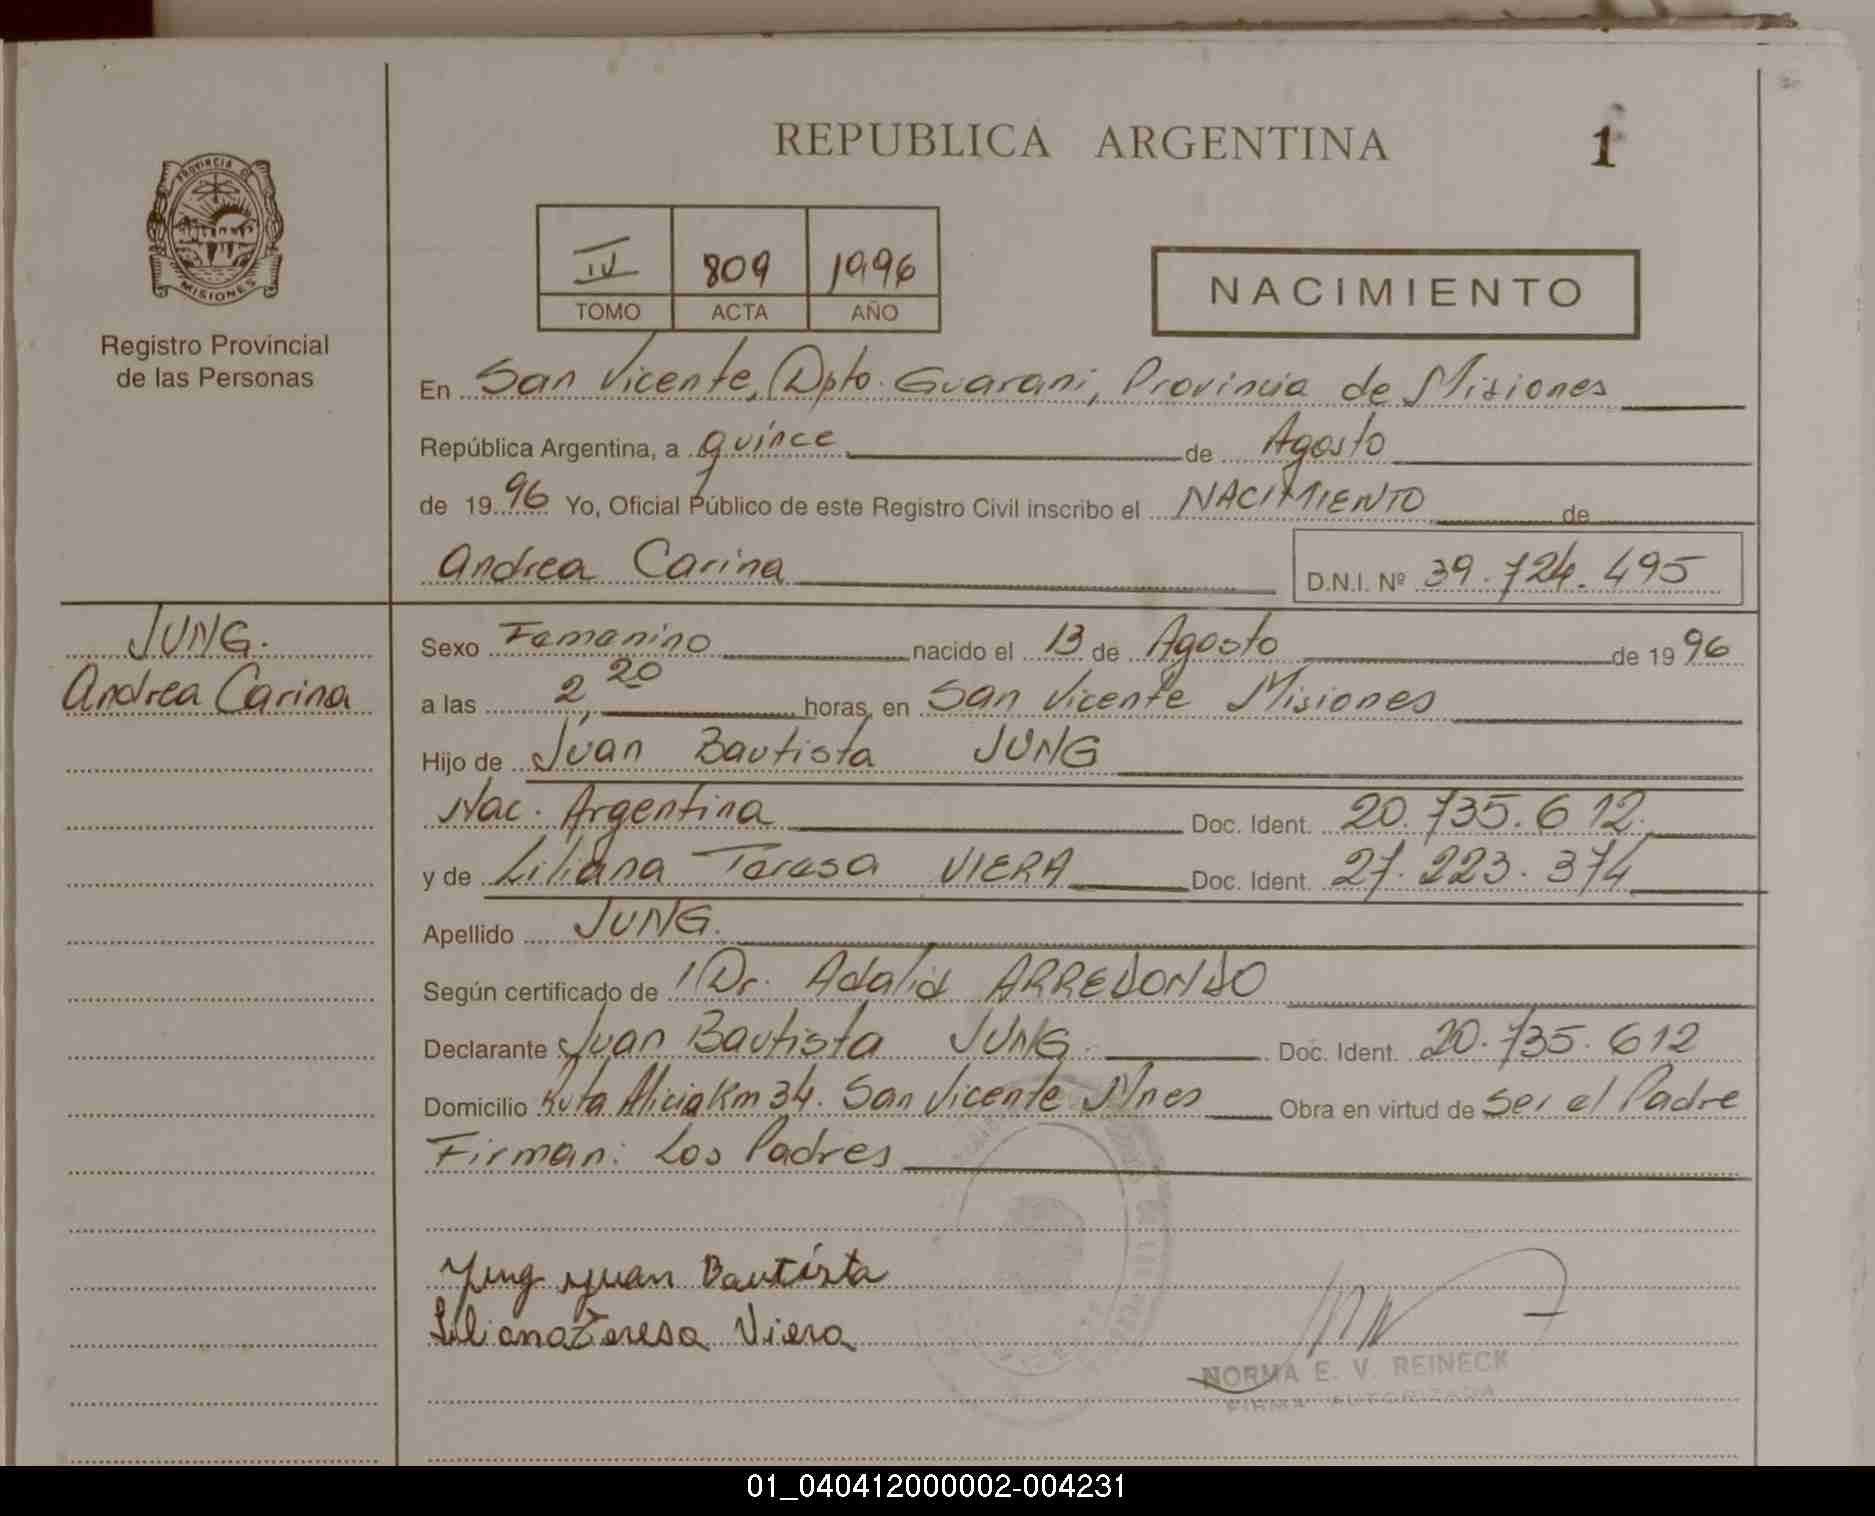 REPUBLICA ARGENTINA
1
PROVINCIA DE
MISIONES
Registro Provincial
de las Personas
IV 809 1996
TOMO ACTA AÑO
NACIMIENTO
En San Vicente, Dpto. Guarani, Provincia de Misiones
República Argentina, a quince de Agosto
de 1996 Yo, Oficial Público de este Registro Civil inscribo el NACIMIENTO de
Andrea Carina D.N.I. Nº 39.724.495
JUNG.
Andrea Carina
Sexo Femenino nacido el 13 de Agosto de 1996
a las 2,20 horas, en San Vicente Misiones
Hijo de Juan Bautista JUNG
Nac. Argentina Doc. Ident. 20.735.612.
y de Liliana Teresa VIERA Doc. Ident. 27.223.374
Apellido JUNG.
Según certificado de Dr. Adalid ARREDONDO
Declarante Juan Bautista JUNG. Doc. Ident. 20.735.612
Domicilio Ruta Alicia Km 34. San Vicente Mnes Obra en virtud de ser el Padre
Firman: Los Padres
Jung Juan Bautista
Liliana Teresa Viera
NORMA E. V. REINECK
FIRMA AUTORIZADA
01_040412000002-004231